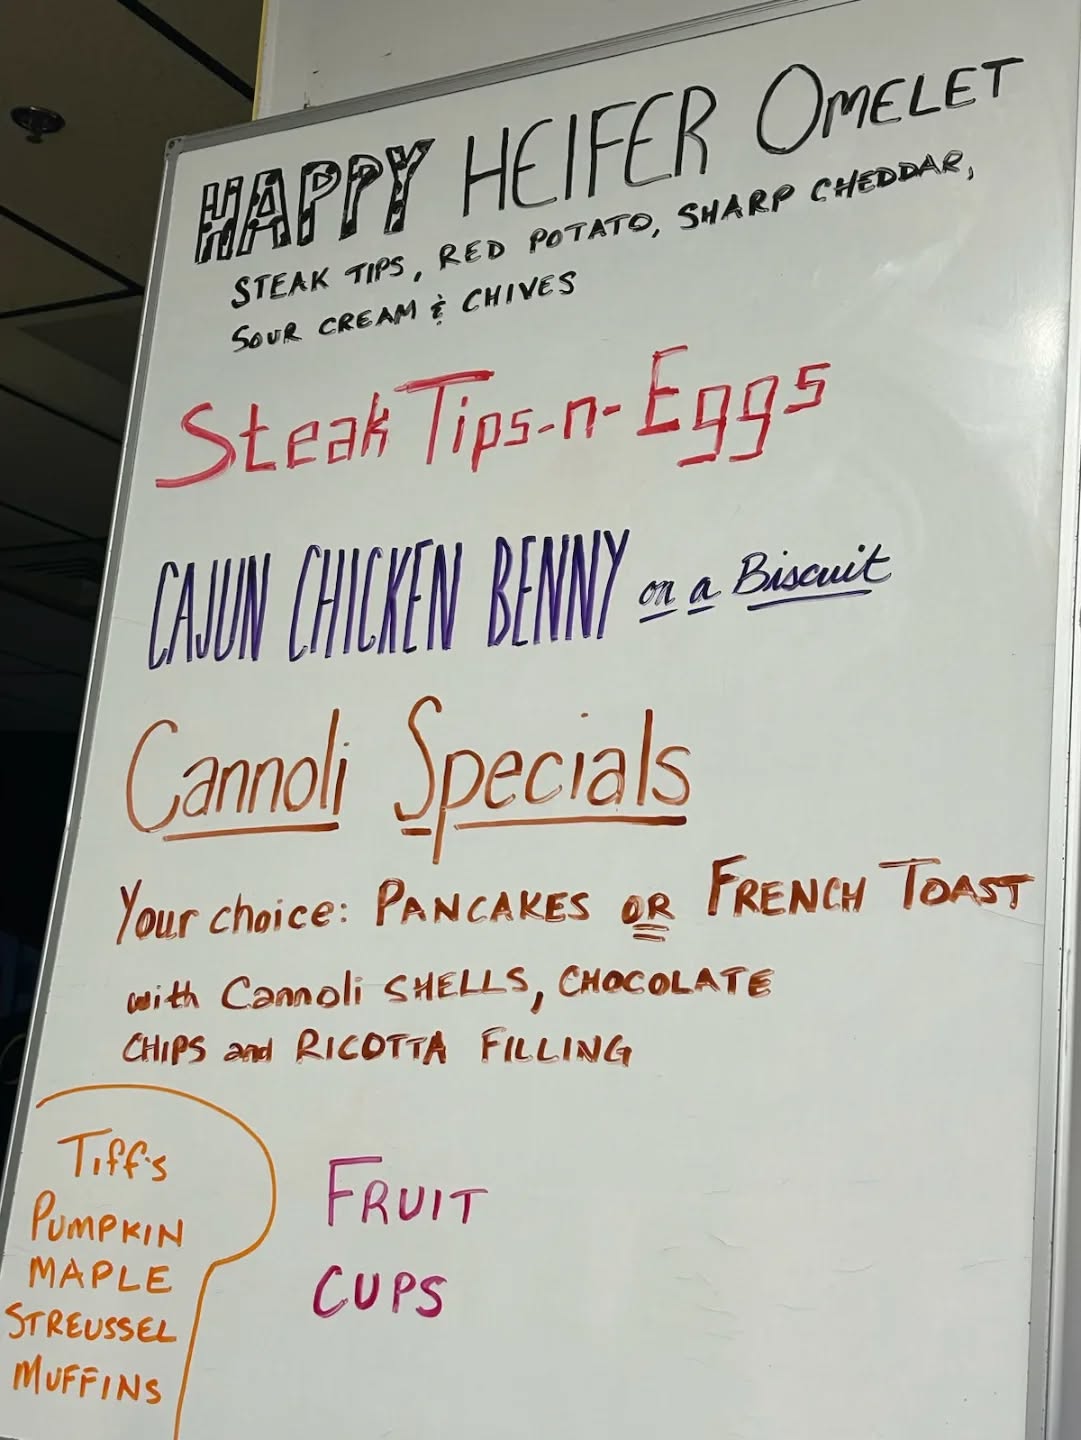 HAPPY HEIFER OMELET
STEAK TIPS, RED POTATO, SHARP CHEDDAR,
SOUR CREAM & CHIVES
Steak Tips-n-Eggs
CAJUN CHICKEN BENNY on a Biscuit
Cannoli Specials
Your choice: PANCAKES OR FRENCH TOAST
with Cannoli SHELLS, CHOCOLATE
CHIPS and RICOTTA FILLING
Tiff's
PUMPKIN
MAPLE
STREUSSEL
MUFFINS
FRUIT
CUPS